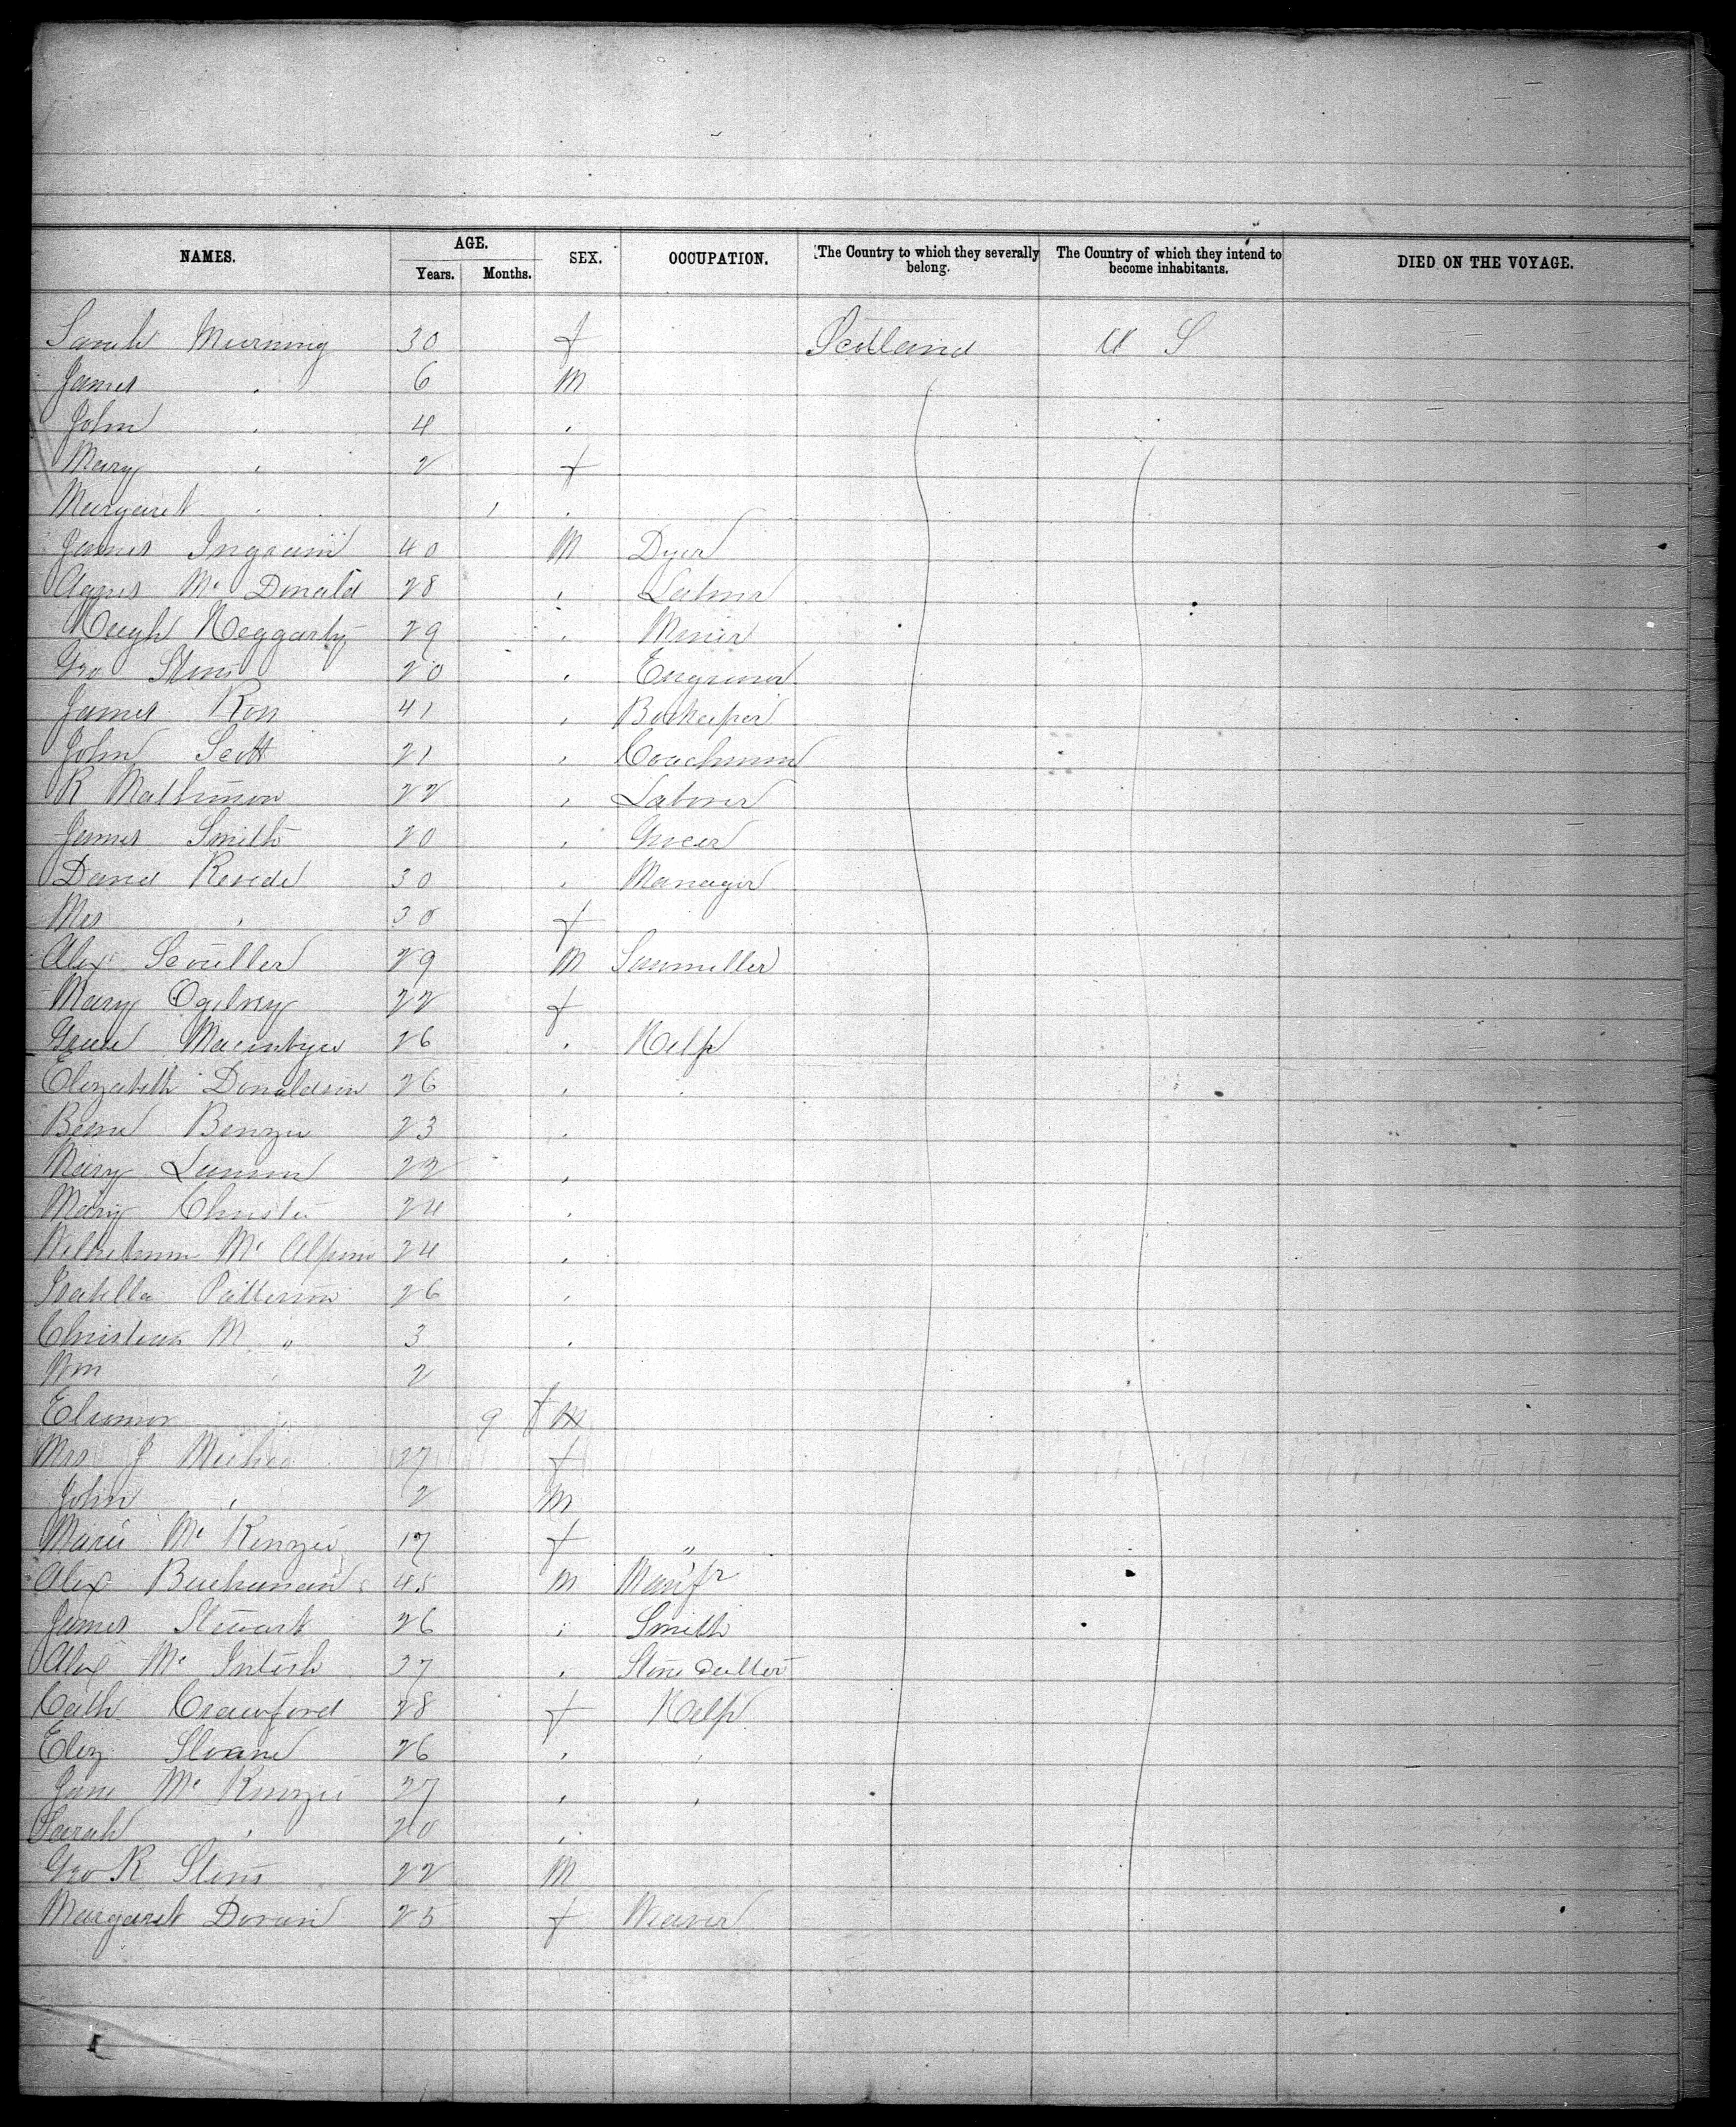 NAMES. AGE. Years. Months. SEX. OCCUPATION. The Country to which they severally belong. The Country of which they intend to become inhabitants. DIED ON THE VOYAGE.
Sarah Murning 30 f Scotland U S
James " 6 M
John " 4 "
Mary " 2 f
Margaret " 1 "
James Ingram 40 M Dyer
Agnes Mc Donald 28 " Labour
Hugh Heggarty 29 " Miner
Geo Stens 20 " Engraver
James Ross 41 " Bookeeper
John Scott 21 " Coachman
R Mathinson 22 " Laborer
James Smith 20 " Grocer
David 30 " Manager
Mrs " 30 f
Alex Scouller 29 M Sawmiller
Mary Ogilvey 22 f
Macintyre 26 " Help
Elizabeth Donaldson 26 "
Benzie 23 "
Mary 22 "
Mary Christie 24 "
Mc Alpine 24 "
Isabella Patterson 26 "
Christian M " 3 "
Wm " 2
Eleanor " 9 f M
Mrs J 27 f
John " 2 M
Marie Mc Kenzie 17 f "
Alex Buchanan 45 M Manfr
James Stewart 26 " Smith
Alex Mc Intosh 37 " Stone Cutter
Cath Crawford 28 f Help
Eliz Sloane 26 " "
Jane Mc Kenzie 27 " "
Sarah " 20 "
Geo R Stens 22 M
Margaret Doran 25 f Weaver